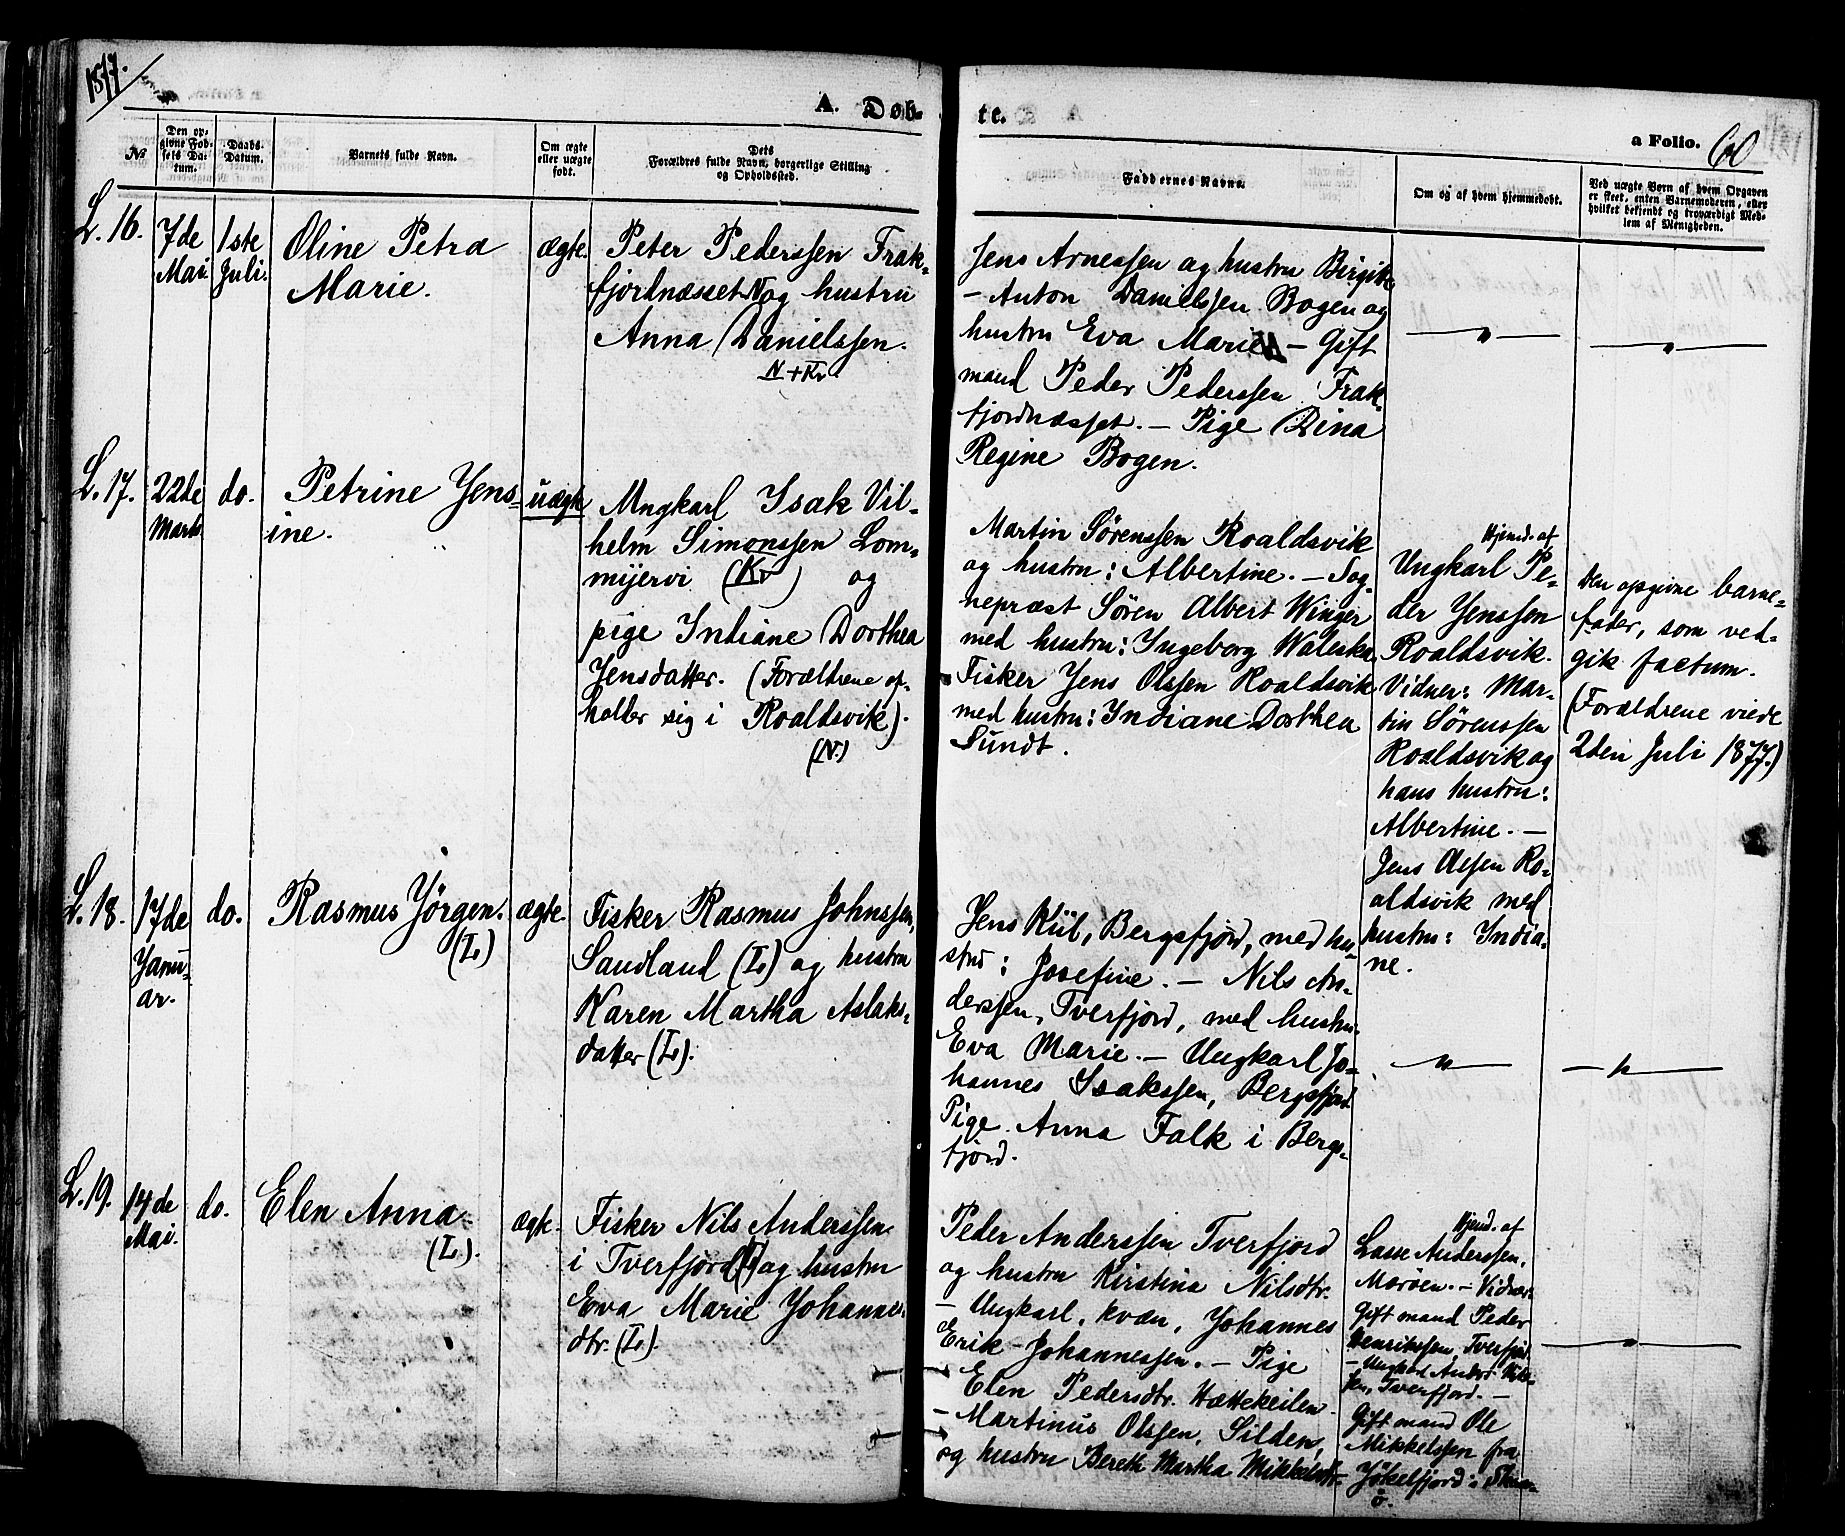 1877.
A. Døb-
te.
a Folio. 60
№
Den op-
givne Fød-
sels Da-
tum.
Daabs-
Datum.
Barnets fulde Navn.
Om ægte
eller uægte
født.
Dets
Forældres fulde Navn, borgerlige Stilling
og Opholdssted.
Faddernes Navne.
Om og af hvem hjemmedøbt.
Ved uægte Børn af hvem Opgaven
er skeet, enten Barnemoderen, eller
hvilket bekjendt og troværdigt Med-
lem af Menigheden.
L. 16.
7de
Mai.
1ste
Juli.
Oline Petra
Marie.
ægte.
Peter Pederssen Frak-
fjordnæsset N og hustru
Anna Danielssen.
N + Kv.
Jens Arnessen og hustru Birgit.
- Anton Danielssen Bogen og
hustru Eva Marie. - Gift
mand Peder Pederssen Frak-
fjordnæsset. - Pige Dina
Regine Bogen.
L. 17.
22de
Marts
do.
Petrine Jens-
ine.
uægte
Ungkarl Isak Vil-
helm Simonssen Lom-
mijervi (Kv) og
pige Indiane Dorthea
Jensdatter. (Forældrene op-
holder sig i Roaldsvik).
(N.)
Martin Sørenssen Roaldsvik
og hustru: Albertine. - Sog-
nepræst Søren Albert Winger
med hustru: Ingeborg Waleska.
Fisker Jens Olssen Roaldsvik
med hustru: Indiane Dorthea
Sundt.
Hjemd. af
Ungkarl Pe-
der Jenssen
Roaldsvik.
Vidner: Mar-
tin Sørenssen
Roaldsvik og
hans hustru:
Albertine. -
Jens Olsen Ro-
aldsvik med
hustru: India-
ne.
Den opgivne barne-
fader, som ved-
gik factum.
(Forældrene viede
2den Juli 1877.)
L. 18.
17de
Janu-
ar.
do.
Rasmus Jørgen.
(L)
ægte.
Fisker Rasmus Johnssen,
Sandland (L) og hustru
Karen Martha Aslaks-
datter (L).
Jens Kiil, Bergsfjord, med hu-
stru: Josefine. - Nils An-
derssen, Tverfjord, med hustru
Eva Marie. - Ungkarl Jo-
hannes Isakssen, Bergsfjord
Pige Anna Falk i Bergs-
fjord.
L. 19.
14de
Mai.
do.
Elen Anna
(L).
ægte.
Fisker Nils Anderssen
i Tverfjord (L) og hustru
Eva Marie Johannes-
dtr. (L).
Peder Anderssen Tverfjord
og hustru Kirstina Nilsdtr.
- Ungkarl, kvæn, Johannes
Erik Johannessen. - Pige
Elen Pedersdtr. Hættekeilen.
- Martinus Olssen, Silden,
og hustru Bereth Martha Mikkelsdtr.
Hjemd. af
Lasse Anderssen,
Marøen. - Vidner:
Gift mand Peder
Henrikssen, Tverfjord
- Ungkarl Anders Nils-
sen, Tverfjord. -
Gift mand Ole
Mikkelssen fra
Jøkelfjord i Skjer-
ø.